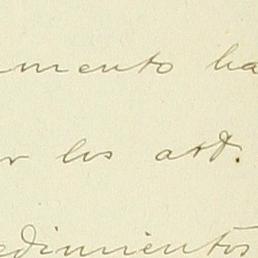 mento ha
r los artº.
edimientos